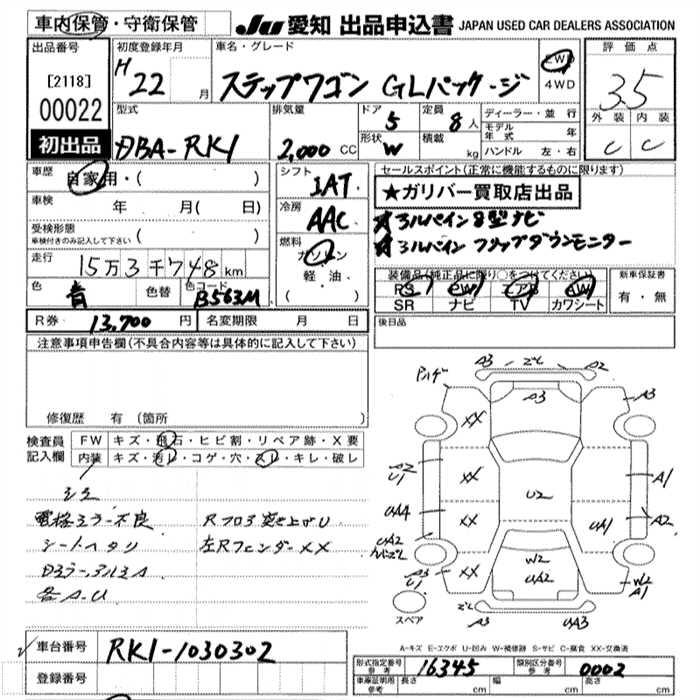 車内保管・守衛保管
JU 愛知 出品申込書 JAPAN USED CAR DEALERS ASSOCIATION
出品番号
[2118]
00022
初出品
初度登録年月
H22 月
車名・グレード
ステップワゴン GLパッケージ
2WD
4WD
評価点
3.5
外装 内装
C C
型式
DBA-RK1
排気量
2,000 CC
ドア 5
形状 W
定員 8 人
積載 kg
ディーラー・並行
モデル年式 年
ハンドル 左・右
車歴 自家用・( )
車検 年 月( 日)
受検形態
車検付きのみ記入して下さい ( )
走行 15万3千748km
色 青 色替 色コード B563M
シフト IAT
冷房 AAC
燃料
ガソリン
軽油
( )
セールスポイント(正常に機能するものに限ります)
★ガリバー買取店出品
★アルパイン8型ナビ
★アルパイン フリップダウンモニター
装備品(純正品に限り○をつけてください)
PS PW エアB AW
SR ナビ TV カワシート
新車保証書
有・無
R券 13,700円 名変期限 月 日
後日品
注意事項申告欄(不具合内容等は具体的に記入して下さい)
修復歴 有(箇所 )
検査員記入欄
FW キズ・飛石・ヒビ割・リペア跡・X要
内装 キズ・汚レ・コゲ・穴・スレ・キレ・破レ
電格ミラー不良
シートヘタリ
各A.U
Rフロア突き上げU
左Rフェンダー XX
A3 A2
A3 A3
XX
A2
U1
XX
A1
U2
UA4
XX
UA1
A2
UA2
W2
UA2
A3
U1
XX
W2
A1
A3 UA3
スペア
A-キズ E-エクボ U-凹み W-補修跡 S-サビ C-腐食 XX-交換済
車台番号 RK1-1030302
登録番号
型式指定番号 参考 16345
類別区分番号 参考 0002
車庫証明用 参考 長さ cm 幅 cm 高さ cm